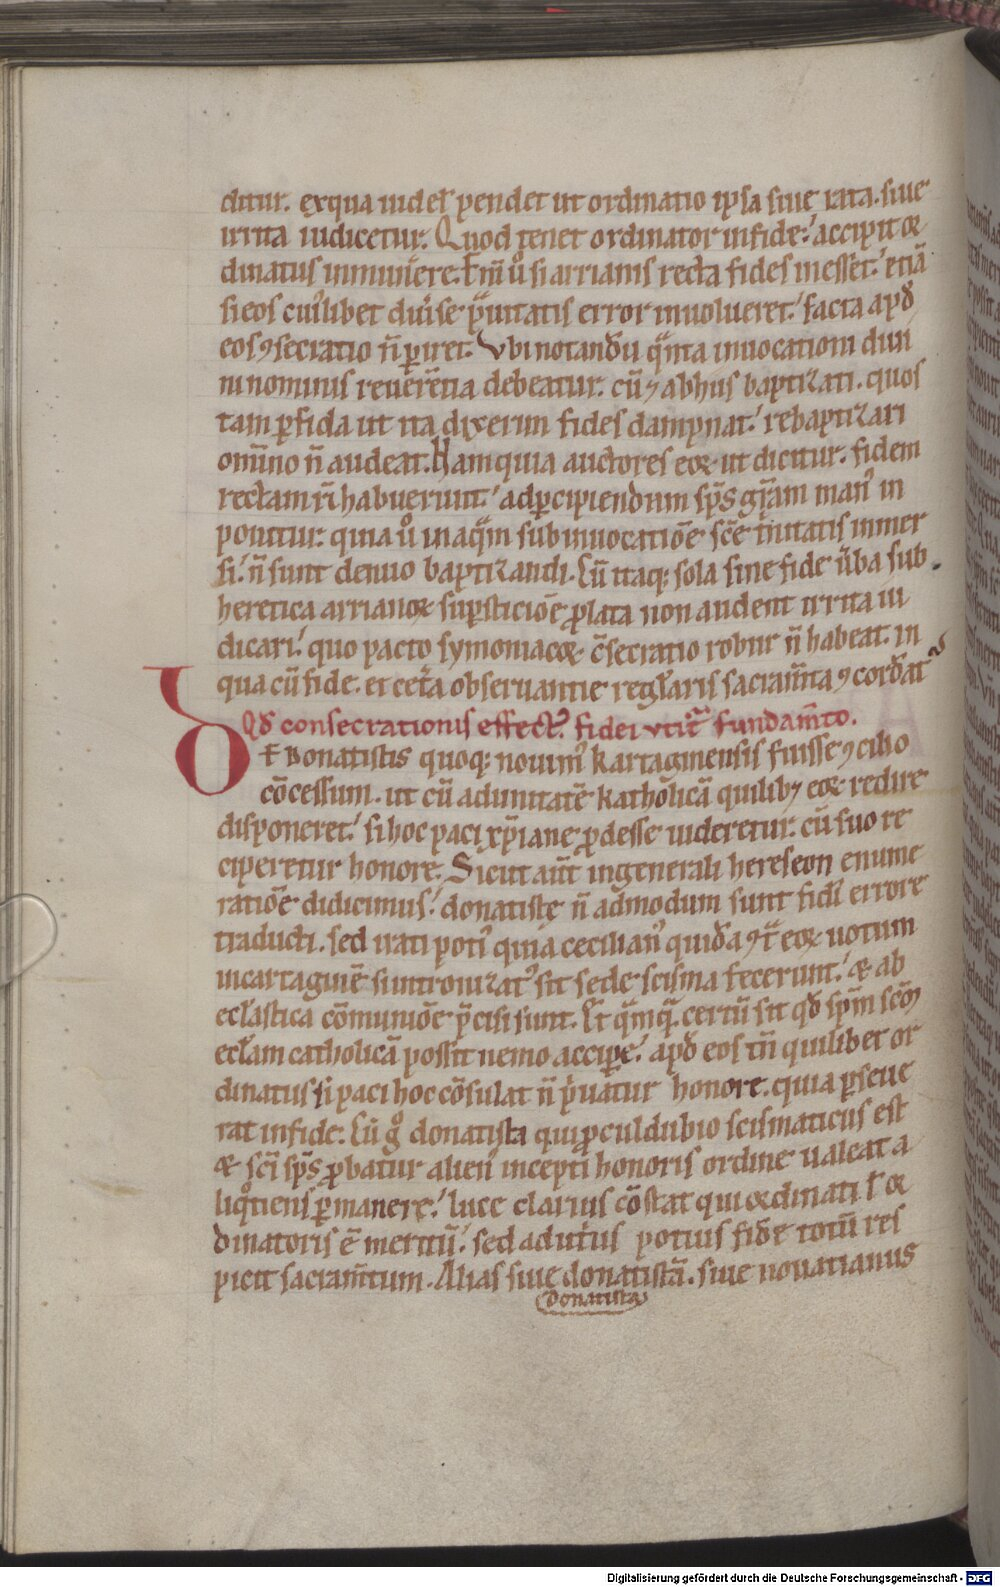 ditur. exqua uidel̄ pendet ut ordinatio ipsa siue rata. siue
irrita iudicetur. Quod tenet ordinator infide: accipit or
dinatus inmunere. Et nī u͛o si arrianis recta fides inesset: etiā
si eos cuiꝰlibet diuīse p̄uitatis error inuolueret: facta apd̄
eos ꝯsecratio n̄ ꝑiret. Vbi notandū q̄nta inuocationi diui
ni nominis reuerētia debeatur. cū ⁊ abhiis baptizati. quos
tam ꝑfida ut ita dixerim fides dampnat: rebaptizari
omīno n̄ audeat. Nam quia auctores eoꝝ ut dicitur. fidem
rectam n̄ habuerunt: adꝑcipiendum sp̄s gr̄am manꝰ in
ponitur: quia u͛o uia q̄m sub inuocatiōe sc̄e t̄nitatis inmer
si: n̄ sunt denuo baptizandi. Cū itaq; sola sine fide u͛ba sub
heretica arrianoꝝ suꝑsticiōe ꝓlata non audent irrita iu
dicari: quo pacto symoniacoꝝ ꝯ̄secratio robur n̄ habeat. in
qua cū fide. et cet͛a obseruantie regl̄aris sacram̄ta ꝯcord̄at
Qd̄ consecrationis effectꝰ fidei vtit͛ fundam̄to.
DE Donatistis quoq; nouimꝰ kartaginensis fuisse ꝯcilio
cōcessum. ut cū ad unitatē katholicā quilib; eoꝝ redire
disponeret: si hoc paci xp̄iane ꝓdesse uideretur. cū suo re
ciperetur honore. Sicut aut̄ ingenerali hereseon enume
ratiōe didicimus: donatistę n̄ admodum sunt fidī errore
traducti. sed irati potiꝰ quia cecilianꝰ quid̄a ꝯt͛ eoꝝ uotum
in cartaginē s introniz̄atꝰ sit sede scisma fecerunt: & ab
ecl̄astica cōmuniōe p̄cisi sunt. Et q̄mq̄. certū sit qd̄ sp̄m sc̄m ex̄
ecl̄am catholicā possit nemo acciꝑe: apd̄ eos tn̄ quilibet or
dinatus si paci hoc cōsulat n̄ p͛uatur honore. quia ꝑseue
rat infide. Cū g͛ donatista qui ꝓculdubio scismaticus est
& sc̄i sp̄s ꝓbatur alienꝰ incepti honoris ordine ualeat a
liqͦtiens ꝑmanere: luce clarius cōstat qui ordinati ł or
dinatoris ē meritū: sed aduīus potius fid̄e totū res
picit sacram̄tum. Alias siue donatistā. siue nouatianus
Donatista